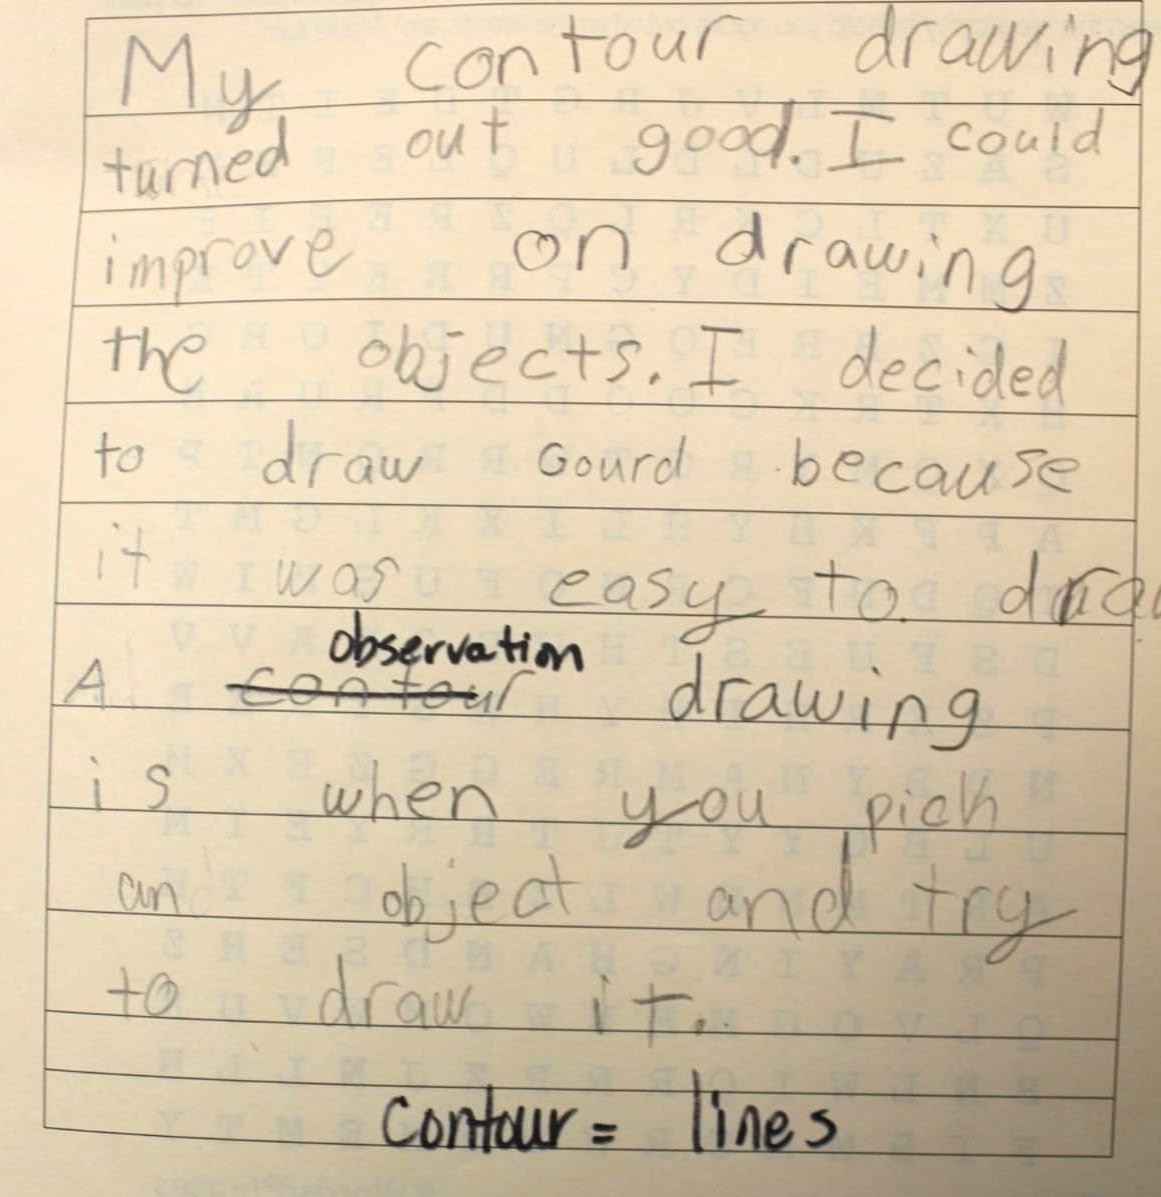 My contour drawing
turned out good. I could
improve on drawing
the objects. I decided
to draw Gourd because
it was easy to. draw
observation
A contour drawing
is when you pick
an object and try
to draw it.
Contour = lines